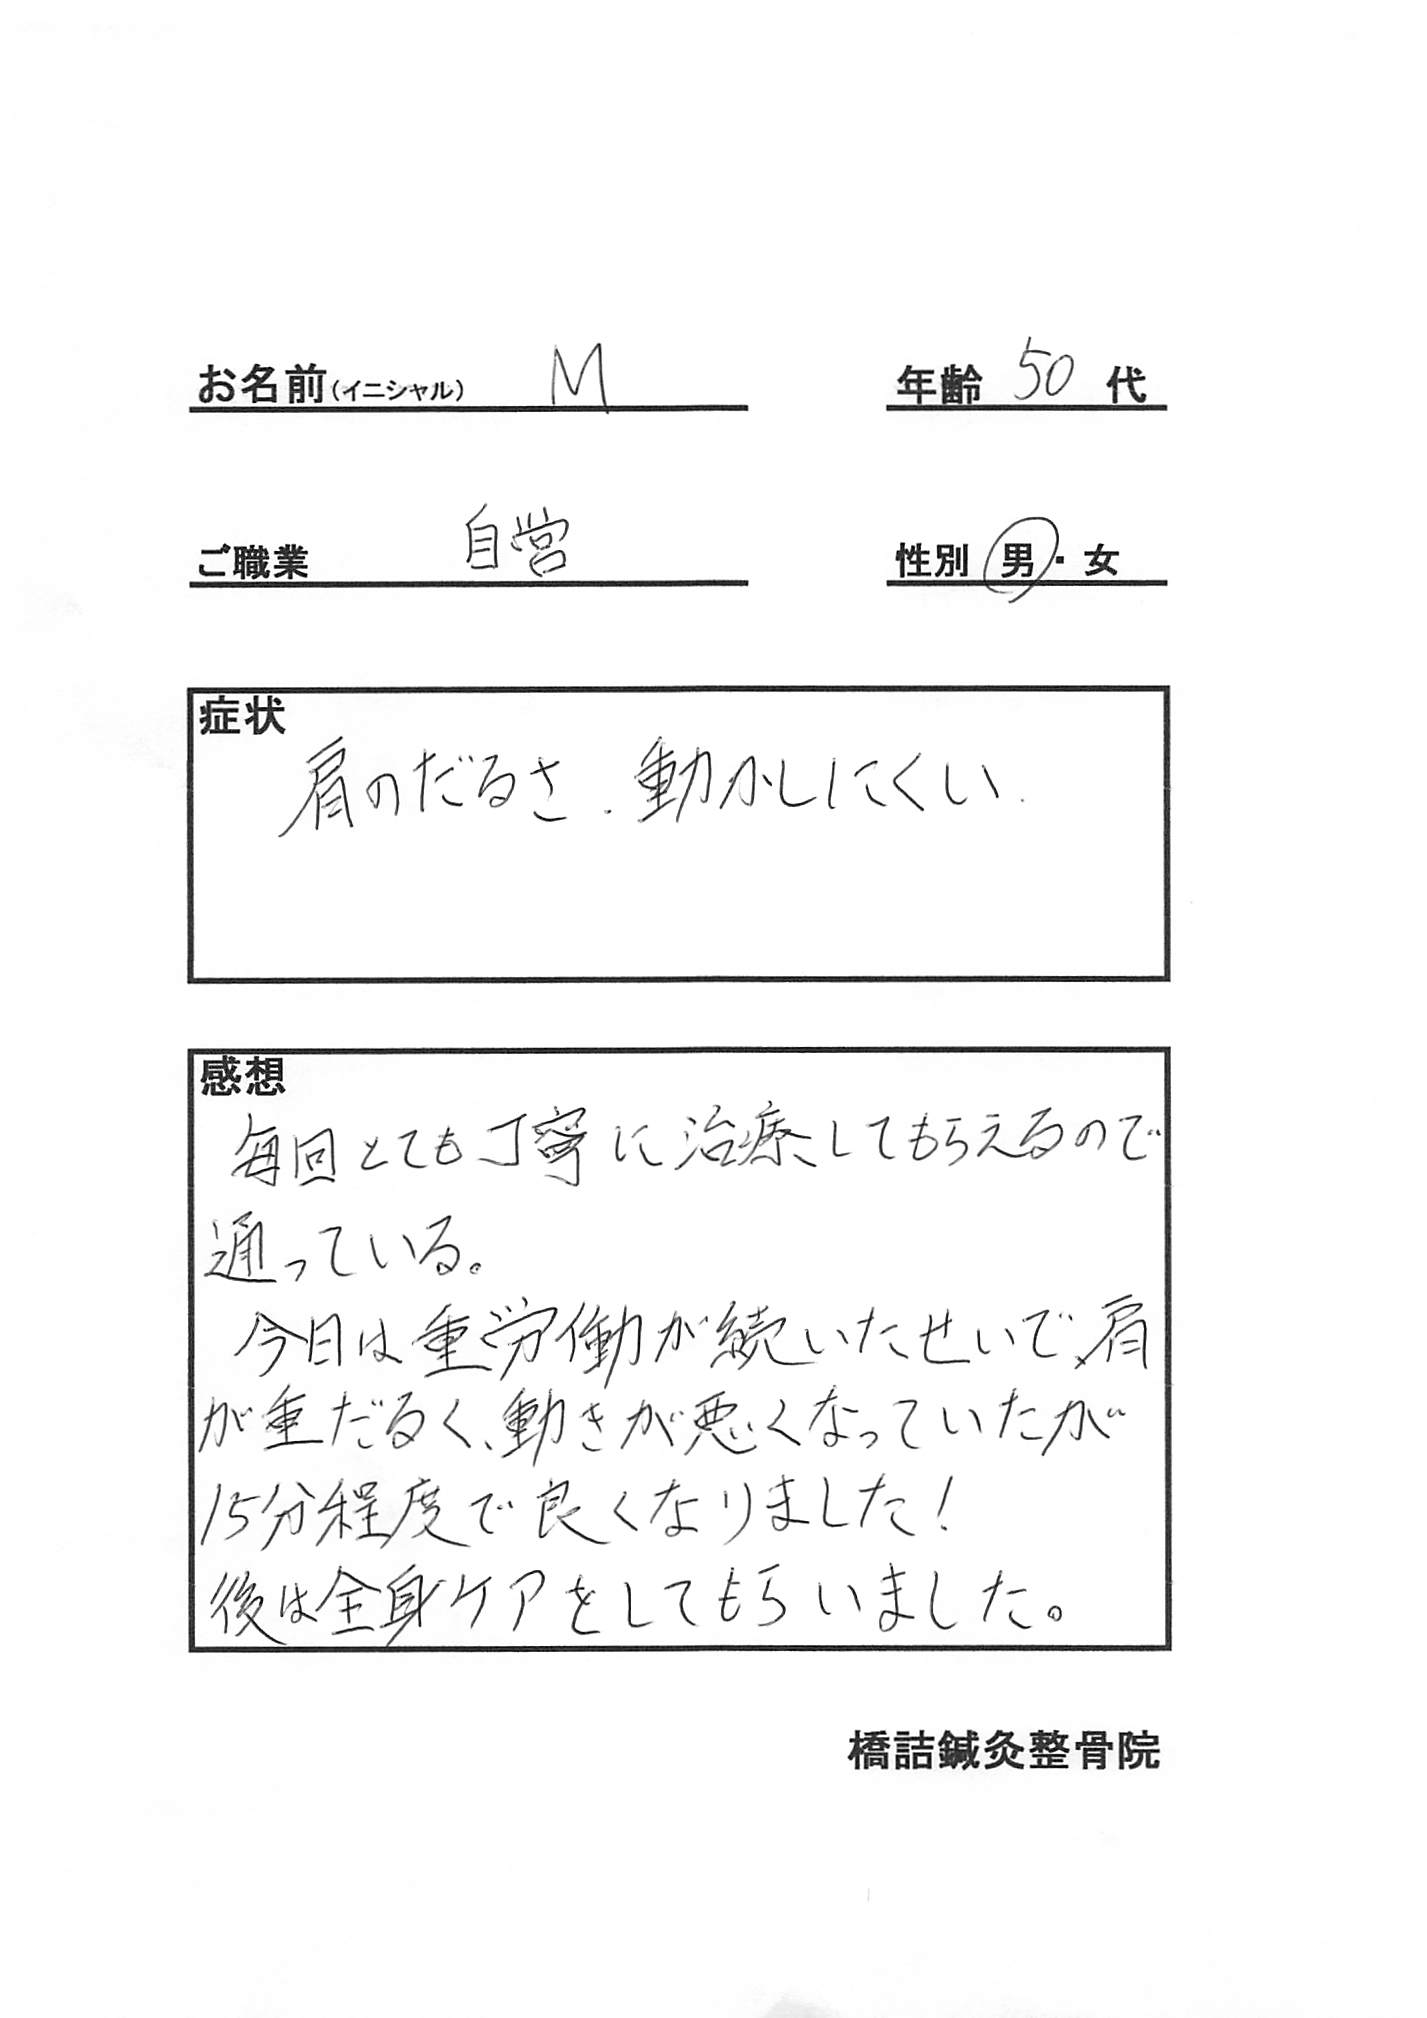 お名前(イニシャル) M 年齢 50 代
ご職業 自営 性別 男・女
症状
肩のだるさ、動かしにくい。
感想
毎回とても丁寧に治療してもらえるので
通っている。
今日は重労働が続いたせいで、肩
が重だるく、動きが悪くなっていたが
15分程度で良くなりました!
後は全身ケアをしてもらいました。
橋詰鍼灸整骨院